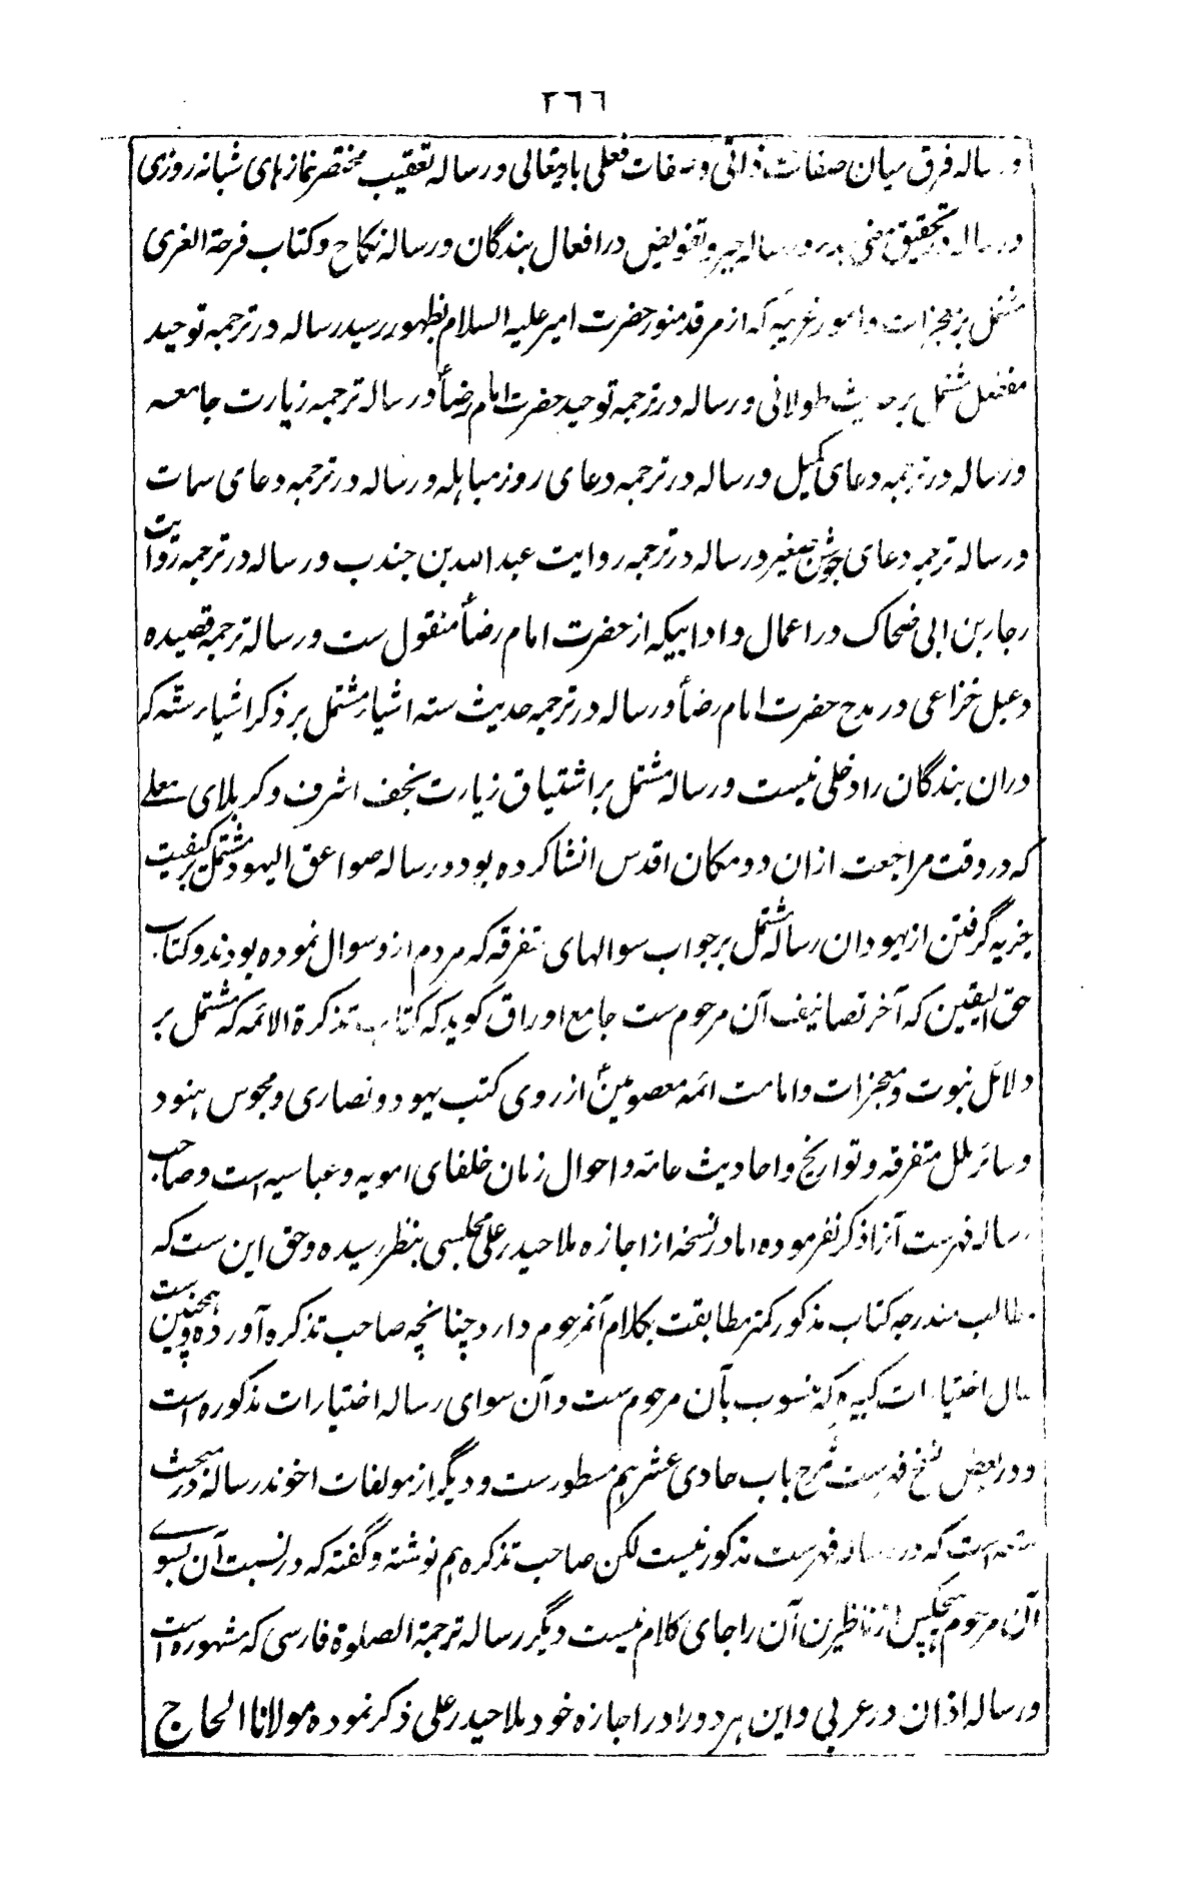 ۲۶۶
و رساله فرق میان صفات ذاتی و صفات فعلی باریتعالی و رساله تعقیب مختصر نمازهای شبانه روزی
و رساله در تحقیق معنی و رساله جبر و تفویض در افعال بندگان و رساله نکاح و کتاب فرحة الغری
مشتمل بر معجزات و امور غریبه که از مرقد منور حضرت امیر علیه السلام بظهور رسید رساله در ترجمه توحید
مفضل مشتمل بر حدیث طولانی و رساله در ترجمه توحید حضرت امام رضاؑ و رساله ترجمه زیارت جامعه
و رساله در ترجمه دعای کمیل و رساله در ترجمه دعای روز مباهله و رساله در ترجمه دعای سمات
و رساله ترجمه دعای جوشن صغیر و رساله در ترجمه روایت عبد الله بن جندب و رساله در ترجمه روایت
رجاء بن ابی ضحاک در اعمال و ادابیکه از حضرت امام رضاؑ منقول ست و رساله ترجمه قصیده
دعبل خزاعی در مدح حضرت امام رضاؑ و رساله در ترجمه حدیث سته اشیاء مشتمل بر ذکر اشیاء سته که
دران بندگان را دخلی نیست و رساله مشتمل بر اشتیاق زیارت نجف اشرف و کربلای معلے
که در وقت مراجعت ازان دو مکان اقدس انشا کرده بود و رساله صواعق الیهود مشتمل بر کیفیت
جزیه گرفتن از یهودان رساله مشتمل بر جواب سوالهای متفرقه که مردم ازو سوال نموده بودند و کتاب
حق الیقین که آخر تصانیف آن مرحوم ست جامع اوراق گوید که کتاب تذکرة الائمه که مشتمل بر
دلائل نبوت و معجزات و امامت ائمه معصومینؑ از روی کتب یهود و نصاری و مجوس هنود
و سائر ملل متفرقه و تواریخ و احادیث عامه و احوال زمان خلفای امویه و عباسیه است و صاحب
رساله فهرست آنرا ذکر نفرموده اما در نسخه از اجازه ملا حیدر علی مجلسی بنظر رسیده و حق این ست که
مطالب مندرجه کتاب مذکور کمتر مطابقت بکلام آنمرحوم دارد چنانچه صاحب تذکره آورده و همچنین ست
حال اختیارات کبیره که منسوب بآن مرحوم ست و آن سوای رساله اختیارات مذکوره است
و در بعض نسخ فهرست شرح باب حادی عشر هم مسطور ست و دیگر از مولفات اخوند رساله در مبحث
متعه است که در رساله فهرست مذکور نیست لکن صاحب تذکره هم نوشته و گفته که در نسبت آن بسوے
آن مرحوم هیچکس از ناظرین آن را جای کلام نیست دیگر رساله ترجمة الصلوة فارسی که مشهوره است
و رساله اذان در عربی و این هر دو را در اجازه خود ملا حیدر علی ذکر نموده مولانا الحاج